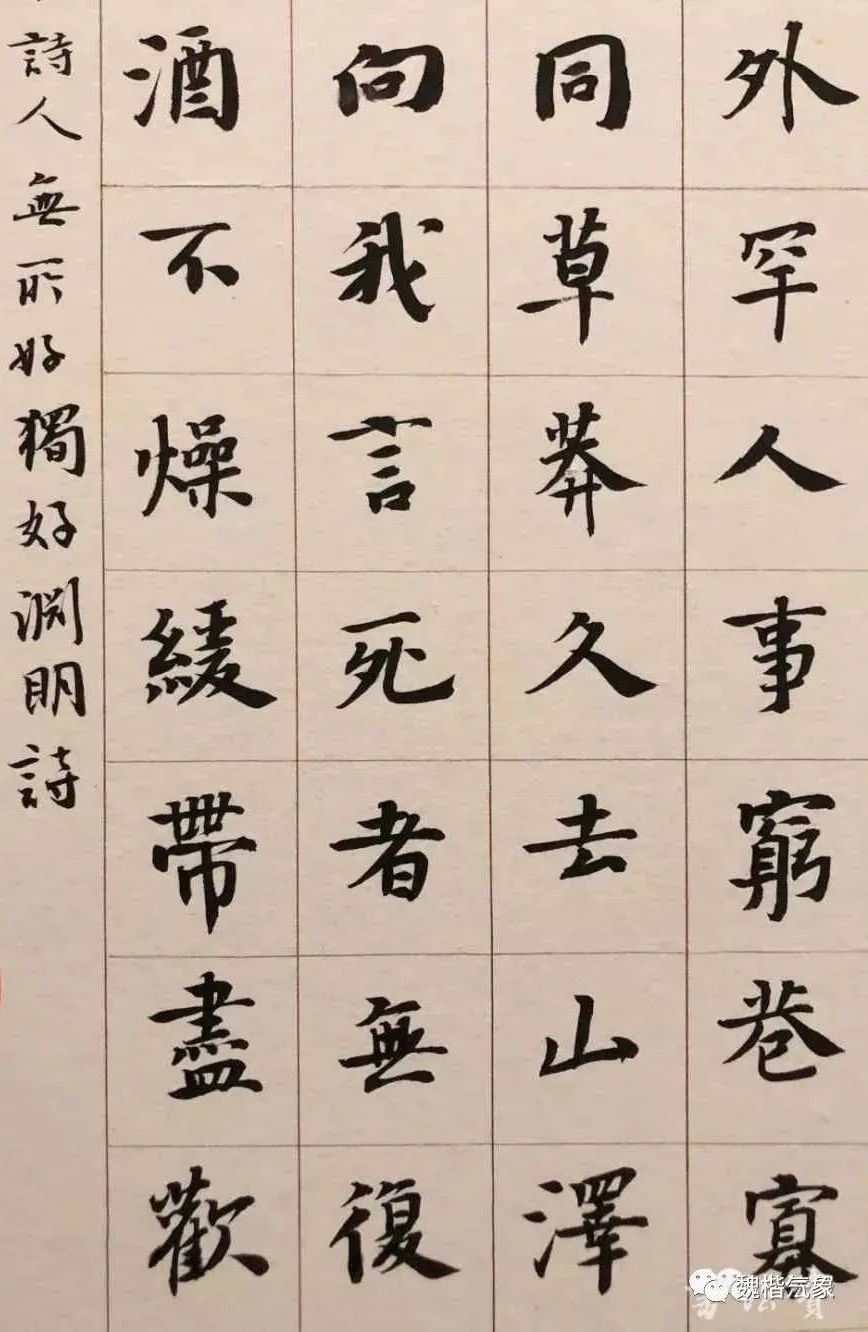 外罕人事窮巷寡
同草莽久去山澤
向我言死者無復
酒不燥緩帶盡歡
詩人無所好獨好淵明詩
魏楷气象